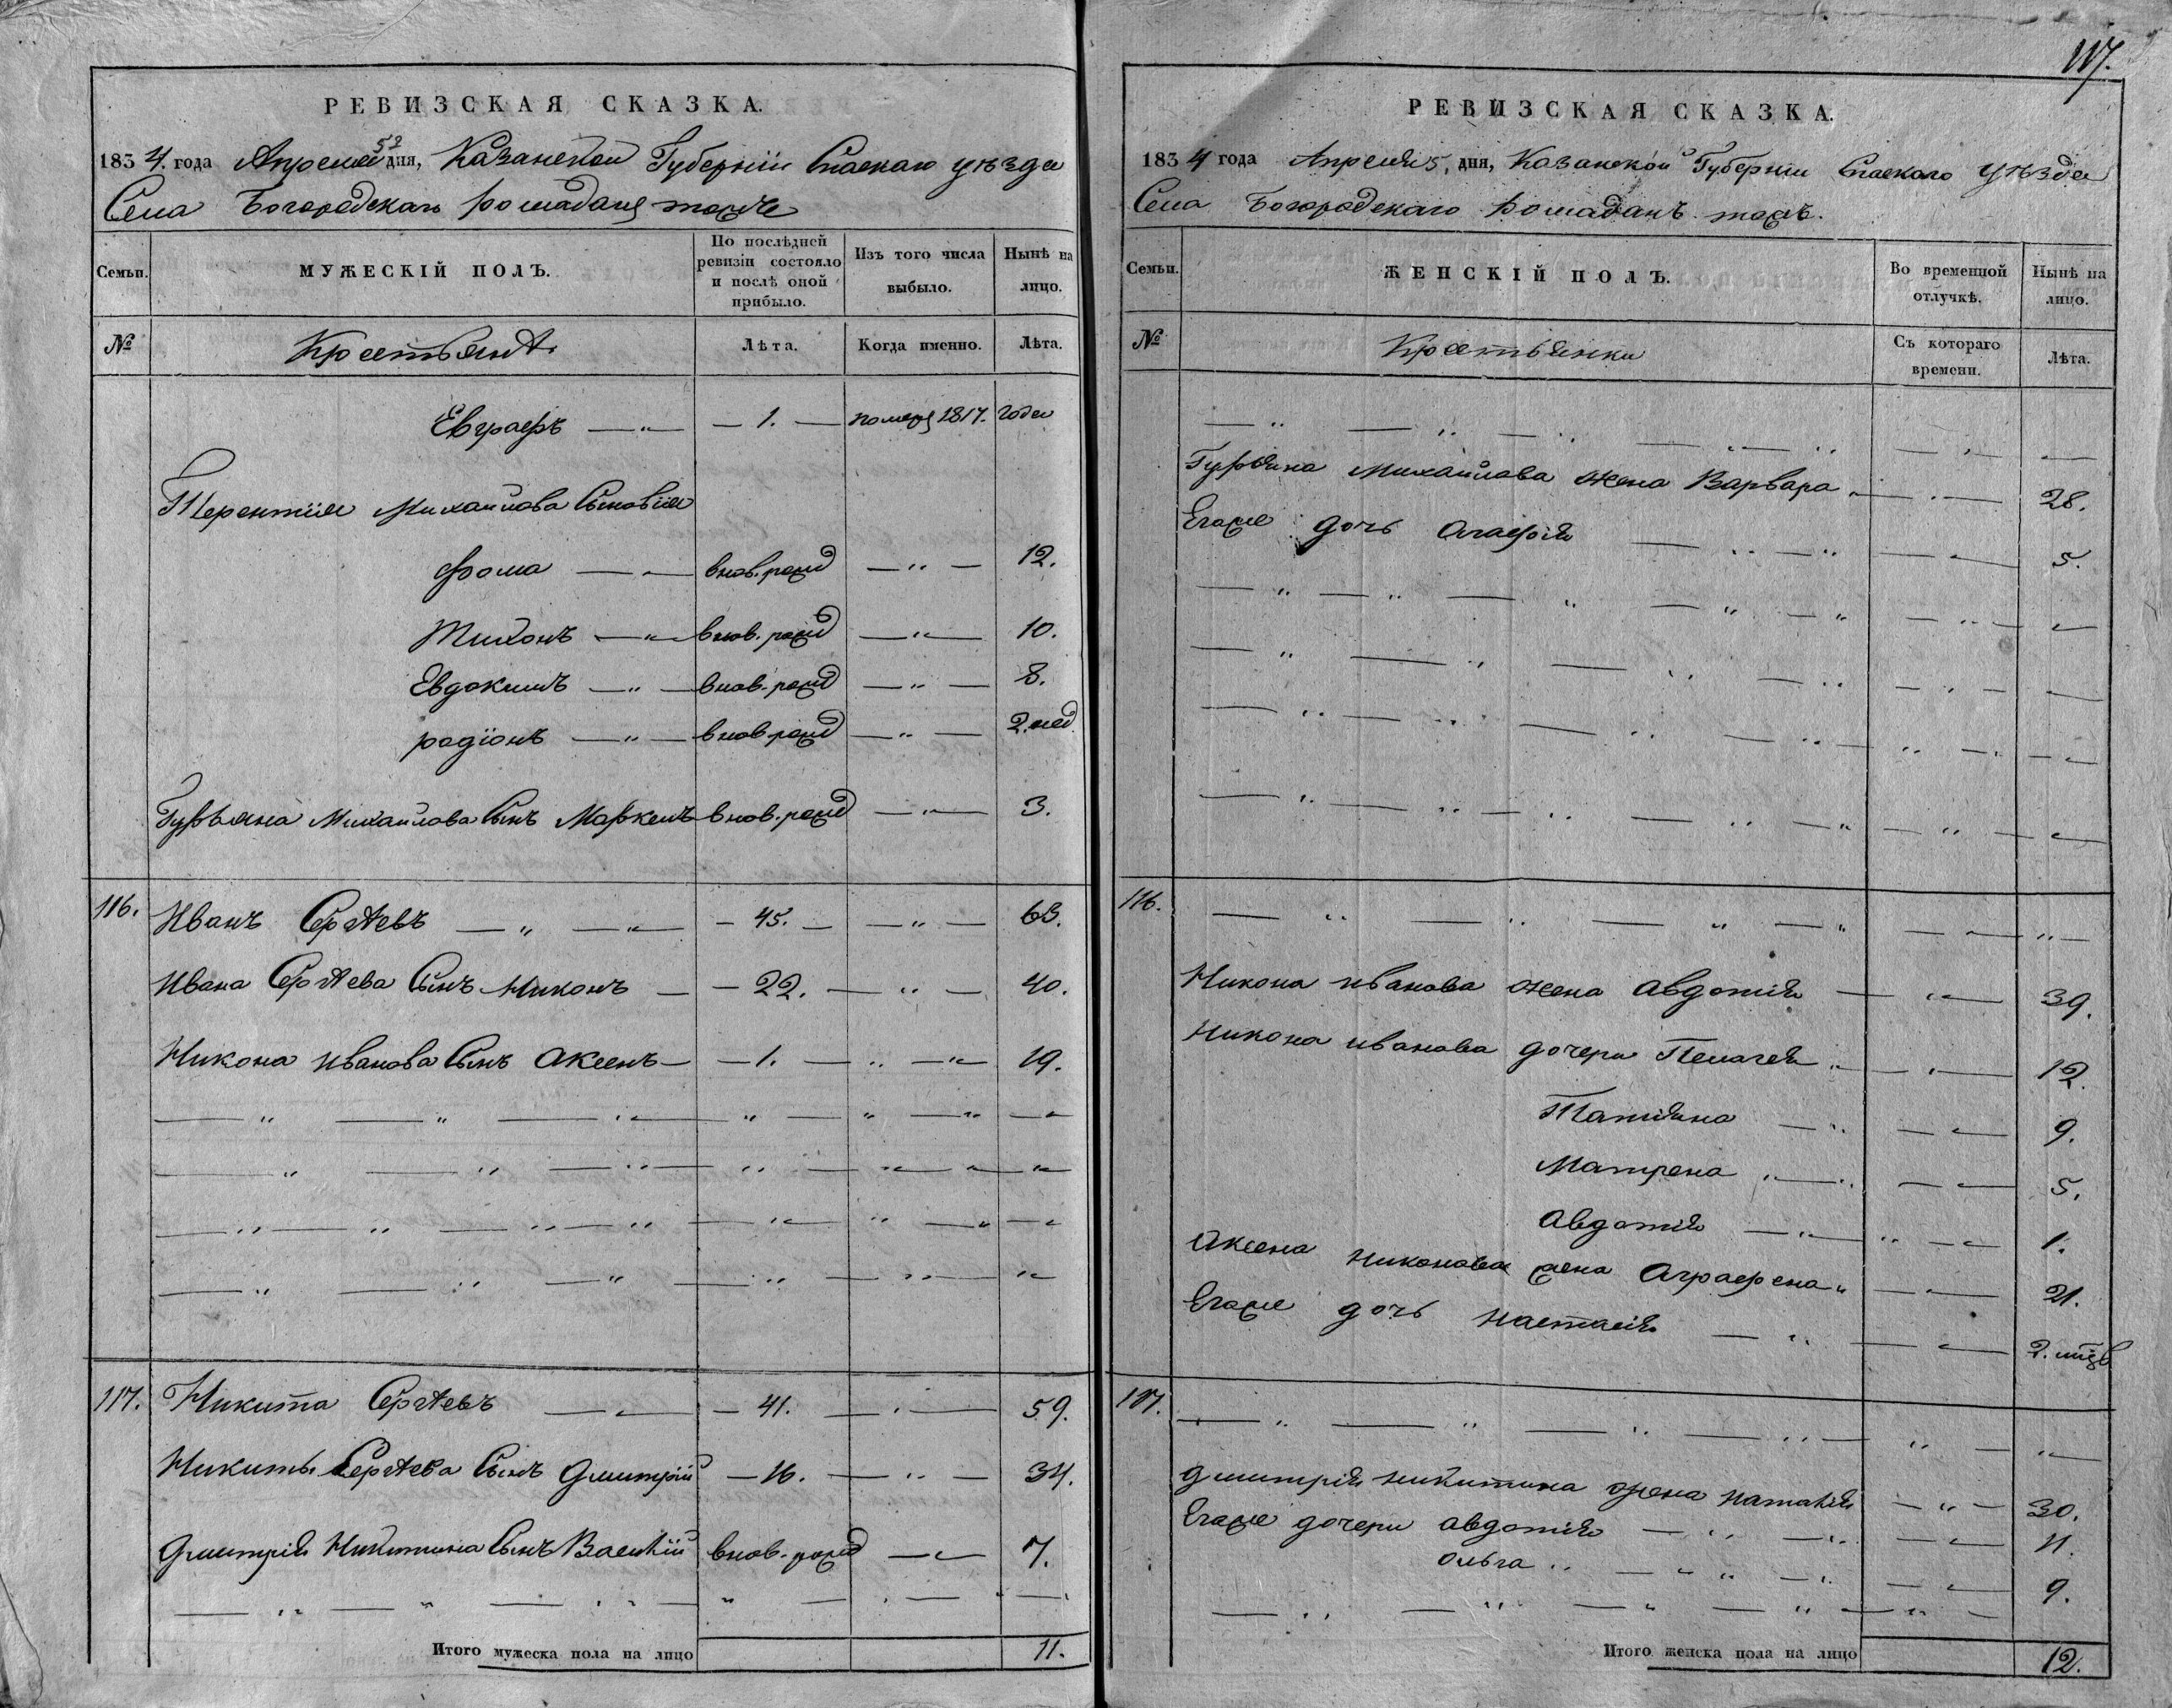 117.
РЕВИЗСКАЯ СКАЗКА.
1834. года Апреля 5го дня, Казанской Губернiи Спаскаго уѣзда
Села Богородскаго Рошадаца тожъ
Семьи. МУЖЕСКIЙ ПОЛЪ. По послѣдней ревизiи состояло и послѣ оной прибыло. Изъ того числа выбыло. Нынѣ на лицо.
№ Крестьянѣ. Лѣта. Когда именно. Лѣта.
Евграфъ — " — — 1. — помер 1817. года
Терентiя Михайлова Сыновiя
фома — " — внов. рожд — " — 12.
Тихонъ — " — внов. рожд — " — 10.
Евдокимъ — " — внов. рожд — " — 8.
родiонъ — " — внов рожд — " — 2. нед
Гурьяна Михайлова Сынъ Маркелъ внов. рожд — " — 3.
116. Иванъ Сергѣевъ — " — " — — 45. — — " — 63.
Ивана Сергѣева Сынъ Никонъ — — 22. — " — 40.
Никона Иванова Сынъ Аксенъ — — 1. — " — " 19.
117. Никита Сергѣевъ — " — — 41. — " — 59.
Никиты Сергѣева Сынъ Дмитрiй — 16. — " — 34.
Дмитрiя Никитина Сынъ Василiй внов. рожд — " — 7.
Итого мужеска пола на лицо 11.
РЕВИЗСКАЯ СКАЗКА.
1834 года Апреля 5, дня, Казанской Губернiи Спаскаго Уѣзда
Села Богородскаго тожъ.
Семьи. ЖЕНСКIЙ ПОЛЪ. Во временной отлучкѣ. Нынѣ на лицо.
№ Крестьянки Съ котораго времени. Лѣта.
Гурьяна Михайлова жена Варвара " — " — 28.
Егоже дочь Агафiя — " — " — " — 5.
116.
Никона иванова жена Авдотiя — " — 39.
Никона иванова дочери Пелагея " — " — 12.
Татiяна — " — " — 9.
Матрена " — " — " — 5.
Авдотiя — " — " — " 1.
Аксена Никонова жена Аграфена " — " — 21.
Егоже дочь Настасiя — " — " — 2. мцъ
117.
Дмитрiя Никитина жена Наталiя — " — 30.
Егоже дочери Авдотiя — " — " — " — 11.
Ольга " — " " — " — " — 9.
Итого женска пола на лицо 12.